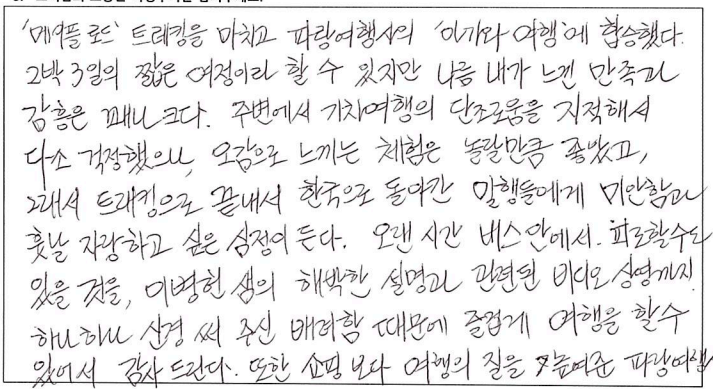 '메이플 로드' 트레킹을 마치고 파랑여행사의 '이기와 여행'에 합승했다.
2박 3일의 짧은 여정이라 할 수 있지만 나름 내가 느낀 만족과
감흥은 꽤나 크다. 주변에서 기차여행의 단조로움을 지적해서
다소 걱정했으나, 오감으로 느끼는 체험은 놀랄만큼 좋았고,
그래서 트래킹으로 끝내서 한국으로 돌아간 일행들에게 미안함과
훗날 자랑하고 싶은 심정이 든다. 오랜 시간 버스 안에서. 피로할수도
있을 것을, 이병헌 샘의 해박한 설명과 관련된 비디오 상영까지
하나하나 신경 써 주신 배려함 때문에 즐겁게 여행을 할 수
있어서 감사 드린다. 또한 쇼핑 보다 여행의 질을 높여준 파랑여행